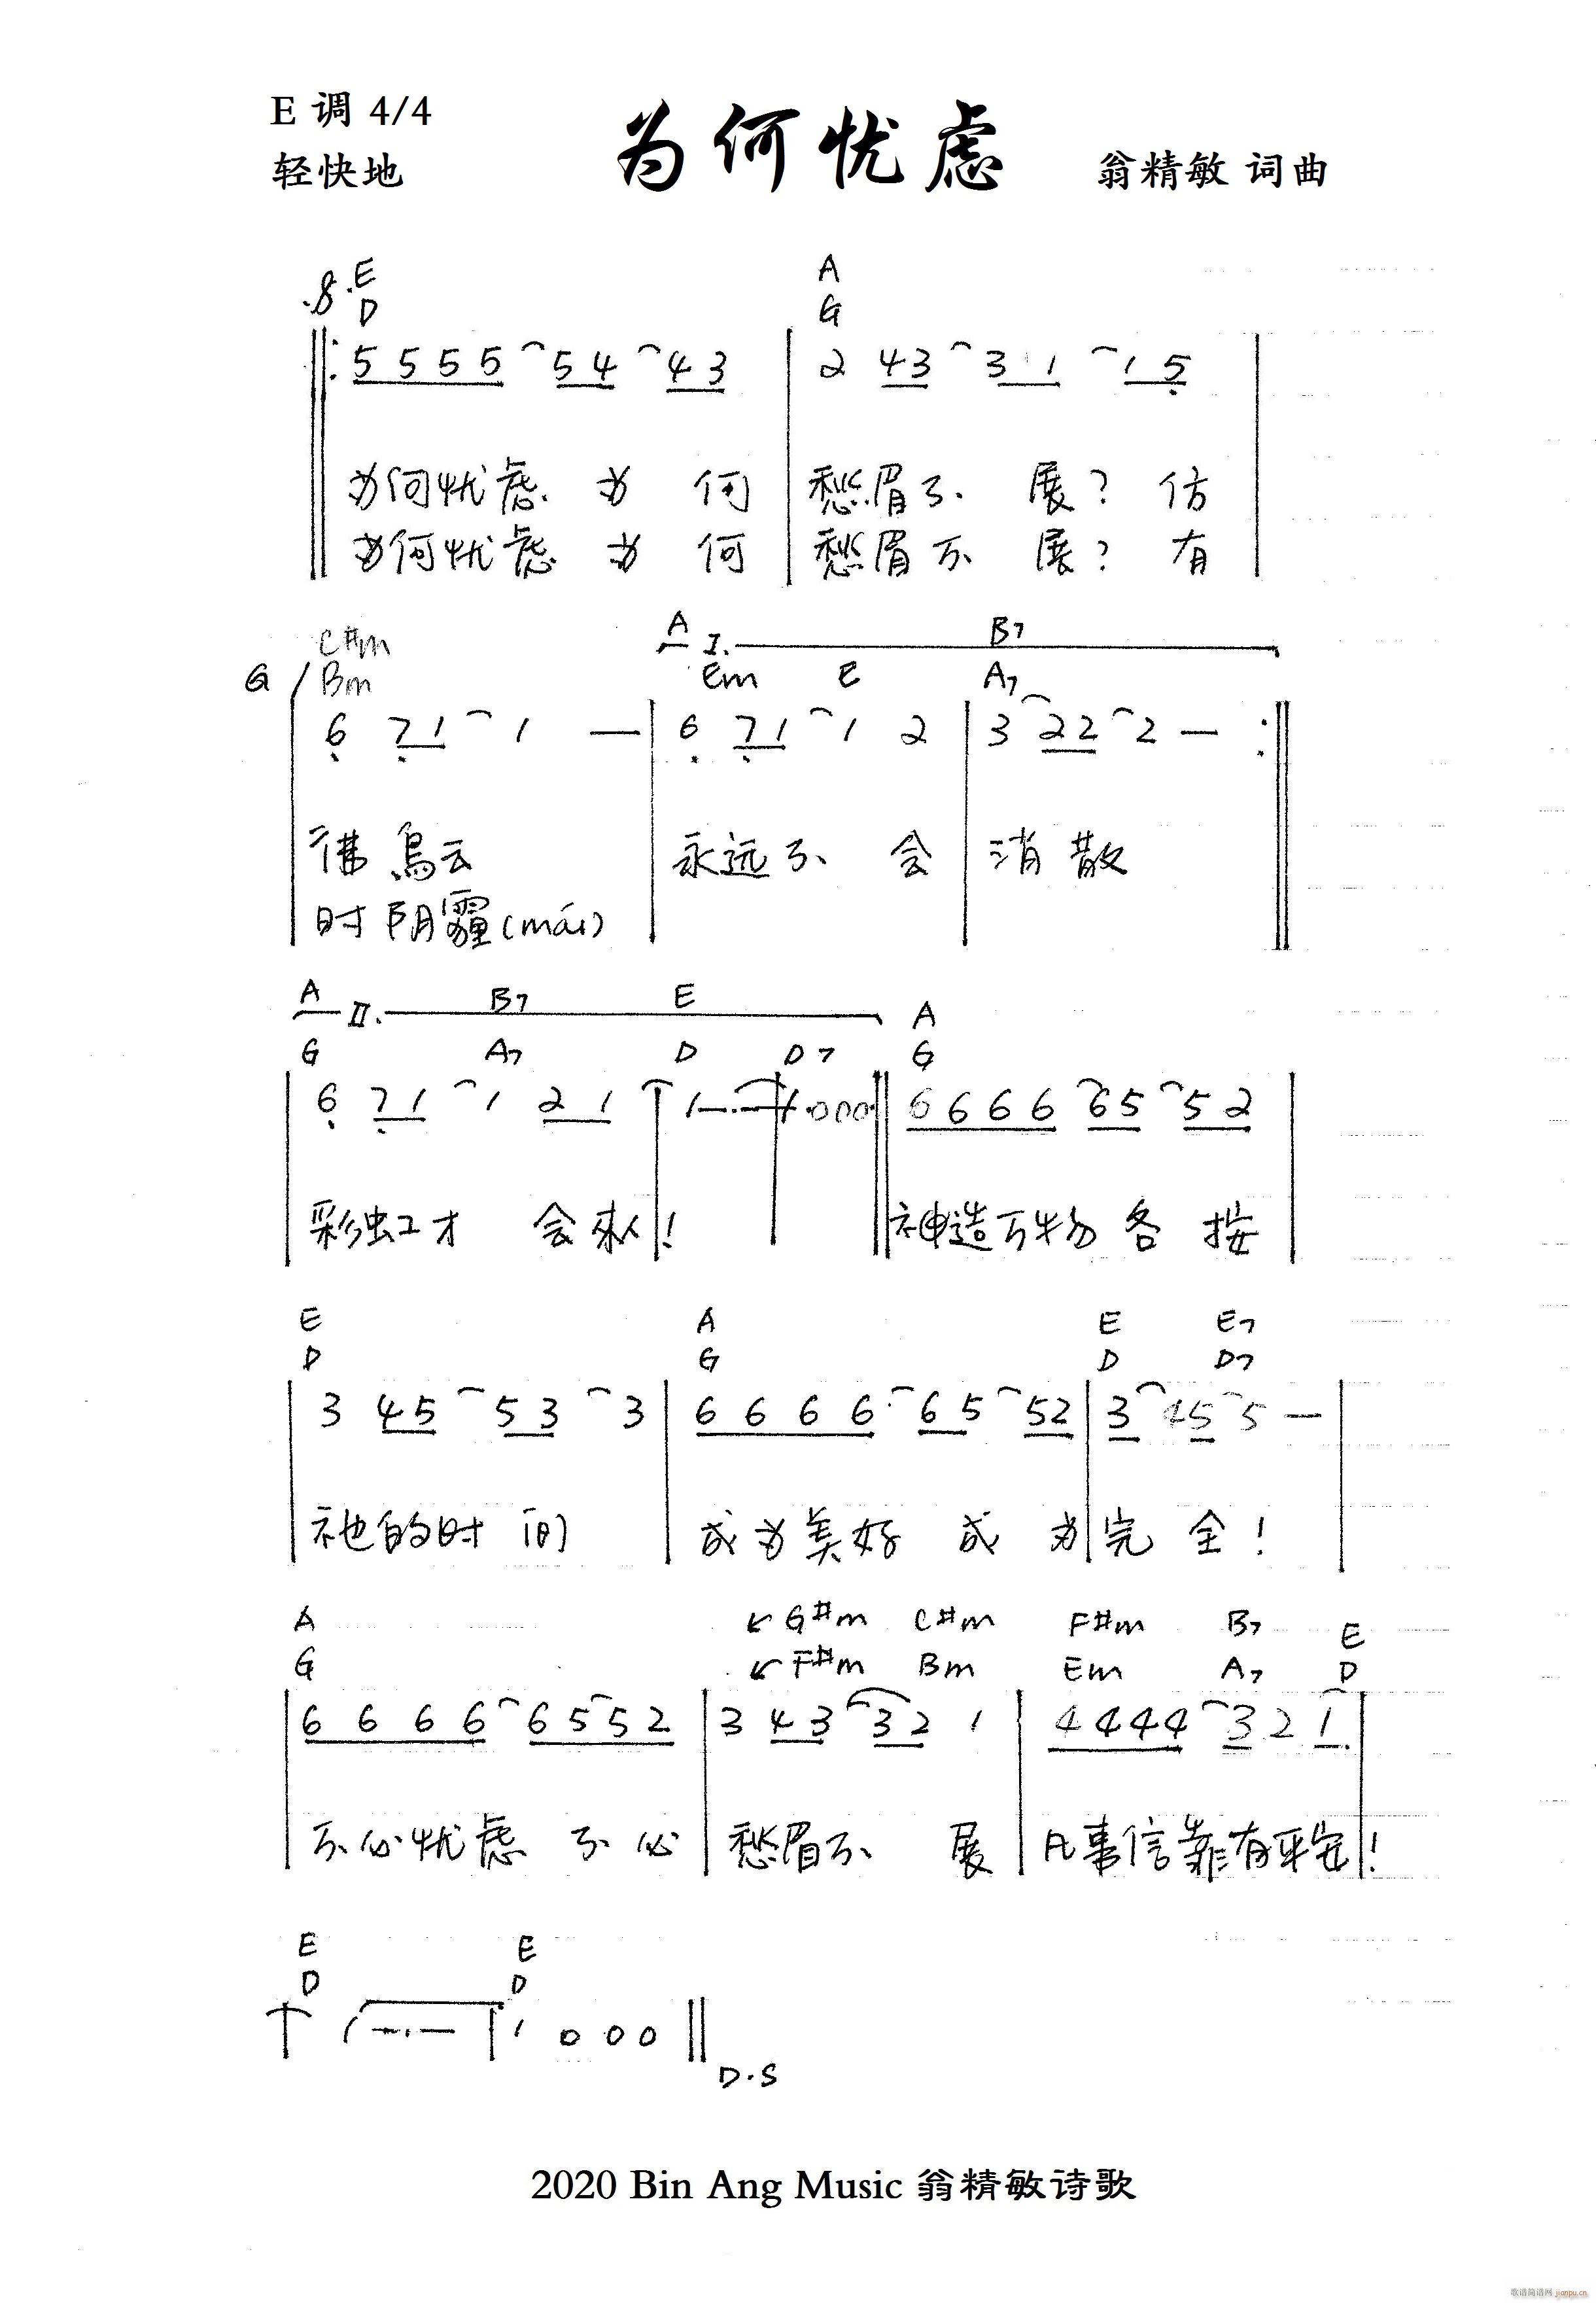 E 调 4/4
为何忧虑
轻快地
翁精敏 词曲
E A
D G
5 5 5 5 5 4 4 3 2 4 3 3 1 1 5
为何忧虑 为 何 愁眉不 展? 仿
为何忧虑 为 何 愁眉不 展? 有
C#m A I. B7
G / Bm Em E A7
6 7 1 1 — 6 7 1 1 2 3 2 2 2 —
彿 烏云 永远不 会 消 散
时 阴霾(mái)
A II. B7 E A
G A7 D D7 G
6 7 1 1 2 1 1 —·— 1 0 0 0 6 6 6 6 6 5 5 2
彩虹才 会來! 神造万物 各 按
E A E E7
D G D D7
3 4 5 5 3 3 6 6 6 6 6 5 5 2 3 4 5 5 —
祂的时 间 成为美好 成 为 完 全!
A G#m C#m F#m B7 E
G F#m Bm Em A7 D
6 6 6 6 6 5 5 2 3 4 3 3 2 1 4 4 4 4 3 2 1.
不必忧虑 不 必 愁眉不 展 凡事信靠有平安!
E E
D D
1 —·— 1 0 0 0
D.S
2020 Bin Ang Music 翁精敏诗歌
歌谱简谱网 jianpu.cn